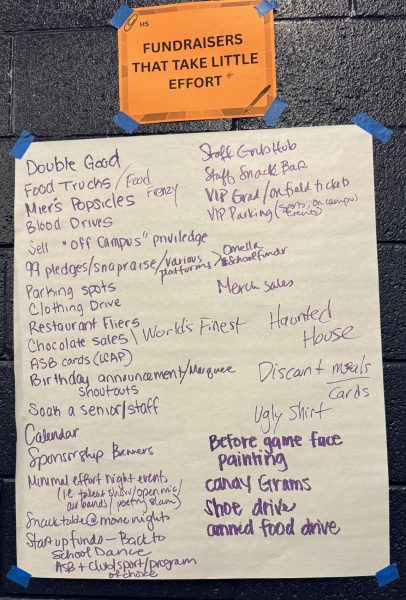 HS
FUNDRAISERS
THAT TAKE LITTLE
EFFORT *
Double Good
Food Trucks / Food
Frenzy
Mier's Popsicles
Blood Drives
Sell "Off Campus" priviledge
99 pledges/snapraise/various
platforms
Parking spots
Clothing Drive
Restaurant Fliers
Chocolate sales \ World's Finest
ASB cards (
Birthday announcement/Marquee
Shoutouts
Soak a senior/staff
Calendar
Banners
Minimal effort night events
(i.e. talent show/open mic/
air bands/poetry slam)
Snack table @ movie nights
Start up funds - Back to
School Dance
ASB + club/sport/program
of choice
Staff Grub Hub
Staff Snack Bar
VIP Grad/On field
VIP Parking (sports, on campus
events)
Merch sales
Haunted
House
Discant meals
Cards
Ugly Shirt
Before game face
painting
candy Grams
Shoe drive
canned food drive